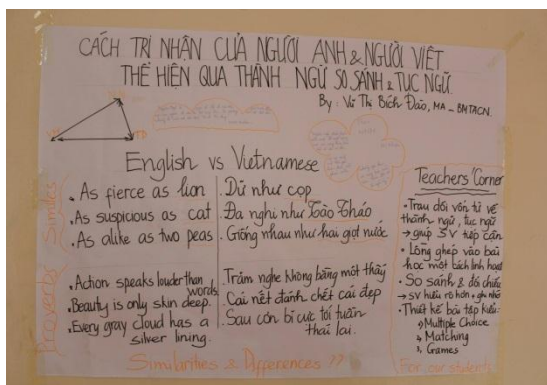 CÁCH TRI NHẬN CỦA NGƯỜI ANH & NGƯỜI VIỆT
THỂ HIỆN QUA THÀNH NGỮ SO SÁNH & TỤC NGỮ
By: Vũ Thị Bích Đào, MA - BMTACN.
English vs Vietnamese
Similes
. As fierce as lion
. As suspicious as cat
. As alike as two peas
. Dữ như cọp
. Đa nghi như Tào Tháo
. Giống nhau như hai giọt nước
Proverbs
. Action speaks louder than
words.
. Beauty is only skin deep.
. Every gray cloud has a
silver lining.
. Trăm nghe không bằng một thấy
. Cái nết đánh chết cái đẹp
. Sau cơn bĩ cực tới tuần
thái lai.
Similarities & Differences ??
Teachers' Corner
• Trau dồi vốn từ về
thành ngữ, tục ngữ
→ giúp SV tiếp cận
• Lồng ghép vào bài
học một cách linh hoạt
• So sánh & đối chiếu
→ SV hiểu rõ hơn & ghi nhớ
• Thiết kế bài tập kiểu:
Multiple Choice
Matching
Games
For our students